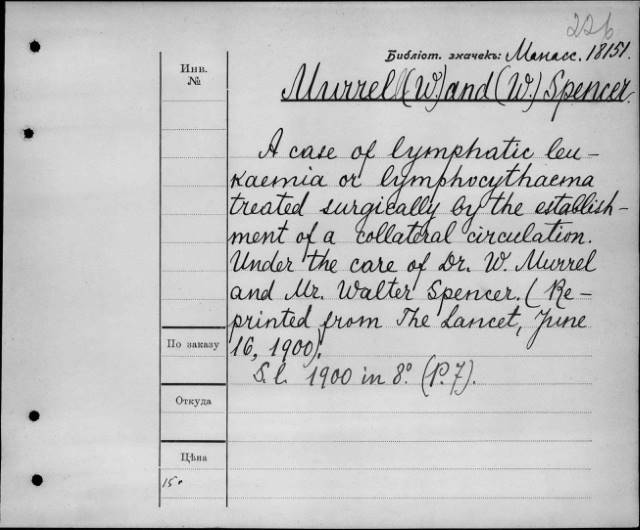 22b
Библіот. значекъ: Манасс. 18151.
Инв.
№
Murrel (W.) and (W.) Spencer.
A case of lymphatic leu-
kaemia or lymphocythaema
treated surgically by the establish-
ment of a collateral circulation.
Under the care of Dr. W. Murrel
and Mr. Walter Spencer. (Re-
printed from The Lancet, June
16, 1900).
S. l. 1900 in 8° (P. 7).
По заказу
Откуда
Цѣна
15.